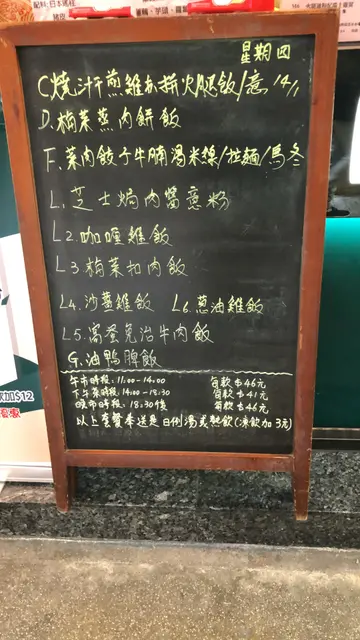 配料:日本豬軟
星期四
C.燒汁干煎雞扒拼火腿飯/意 14/1
D.梅菜蒸肉餅飯
F.菜肉餃子牛腩湯米線/拉麵/烏冬
L1.芝士焗肉醬意粉
L2.咖喱雞飯
L3.梅菜扣肉飯
L4.沙薑雞飯 L6.蔥油雞飯
L5.窩蛋免治牛肉飯
G.油鴨脾飯
午市時段:11:00-14:00 每款$46元
下午茶時段:14:00-18:30 每款$41元
晚市時段:18:30後 每款$46元
以上套餐奉送是日例湯或熱飲(凍飲加3元)
加$12